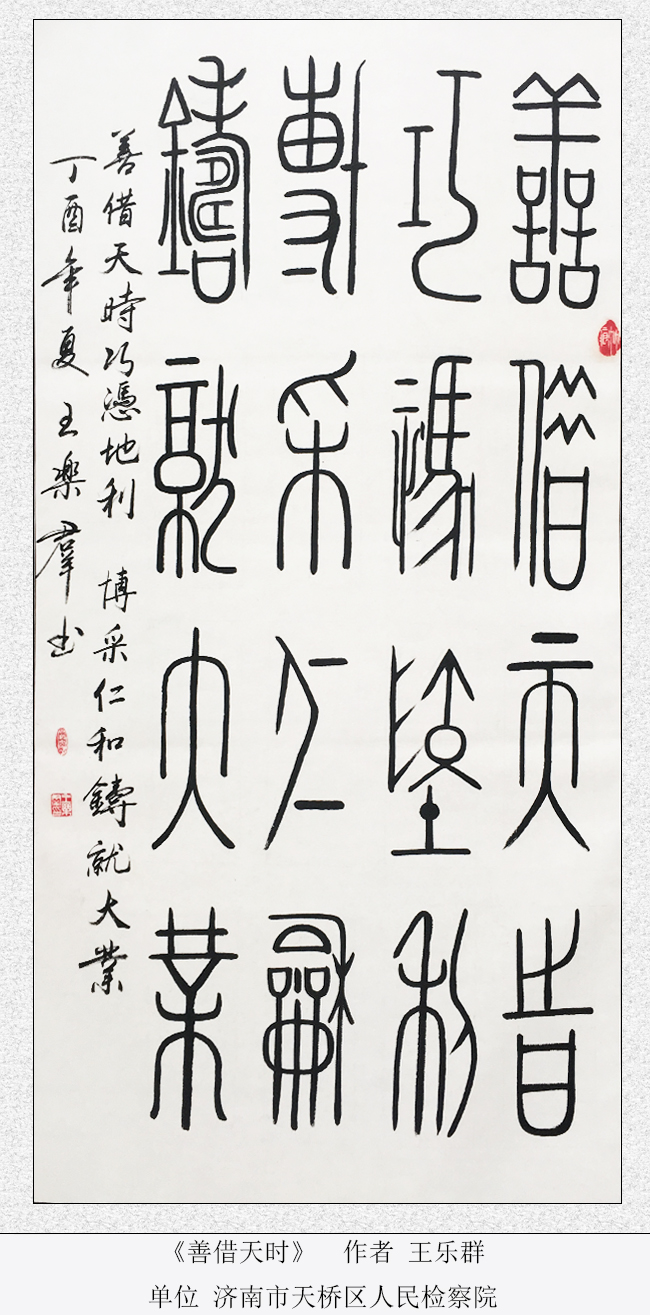 善借天時
巧憑地利
博采仁龢
鑄就大業
善借天時巧憑地利 博采仁和鑄就大業
丁酉年夏王樂羣书
《善借天时》 作者 王乐群
单位 济南市天桥区人民检察院